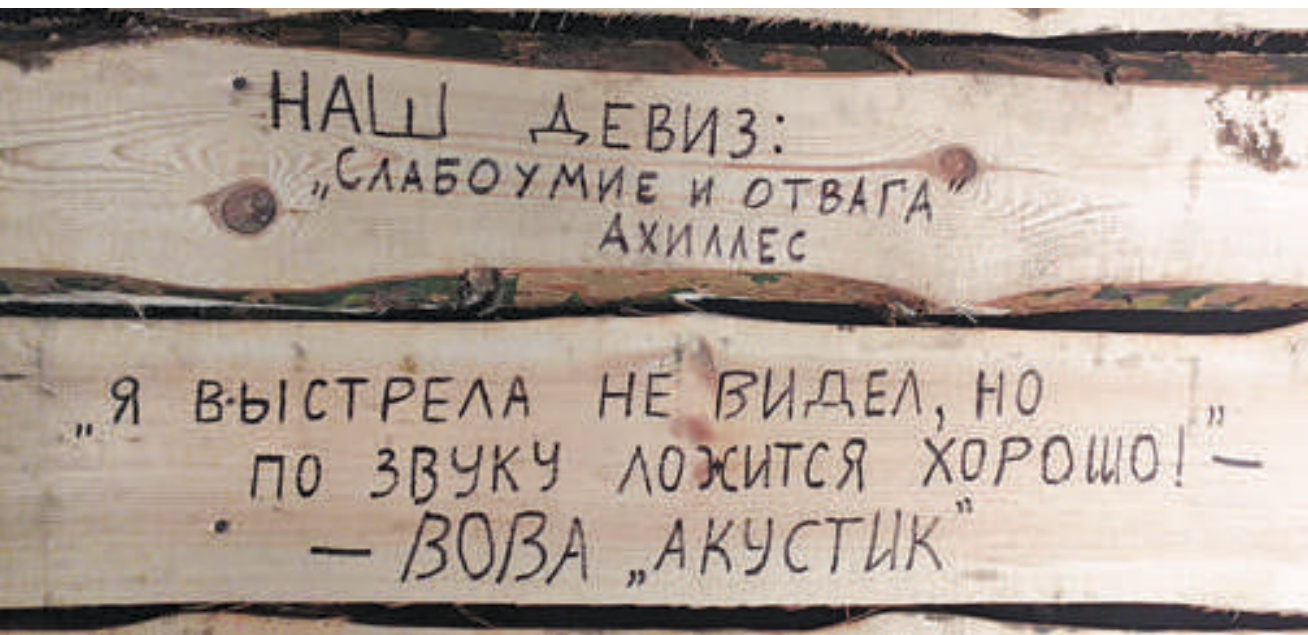 НАШ ДЕВИЗ:
„СЛАБОУМИЕ И ОТВАГА”
АХИЛЛЕС
„Я ВЫСТРЕЛА НЕ ВИДЕЛ, НО
ПО ЗВУКУ ЛОЖИТСЯ ХОРОШО!” –
– ВОВА „АКУСТИК”